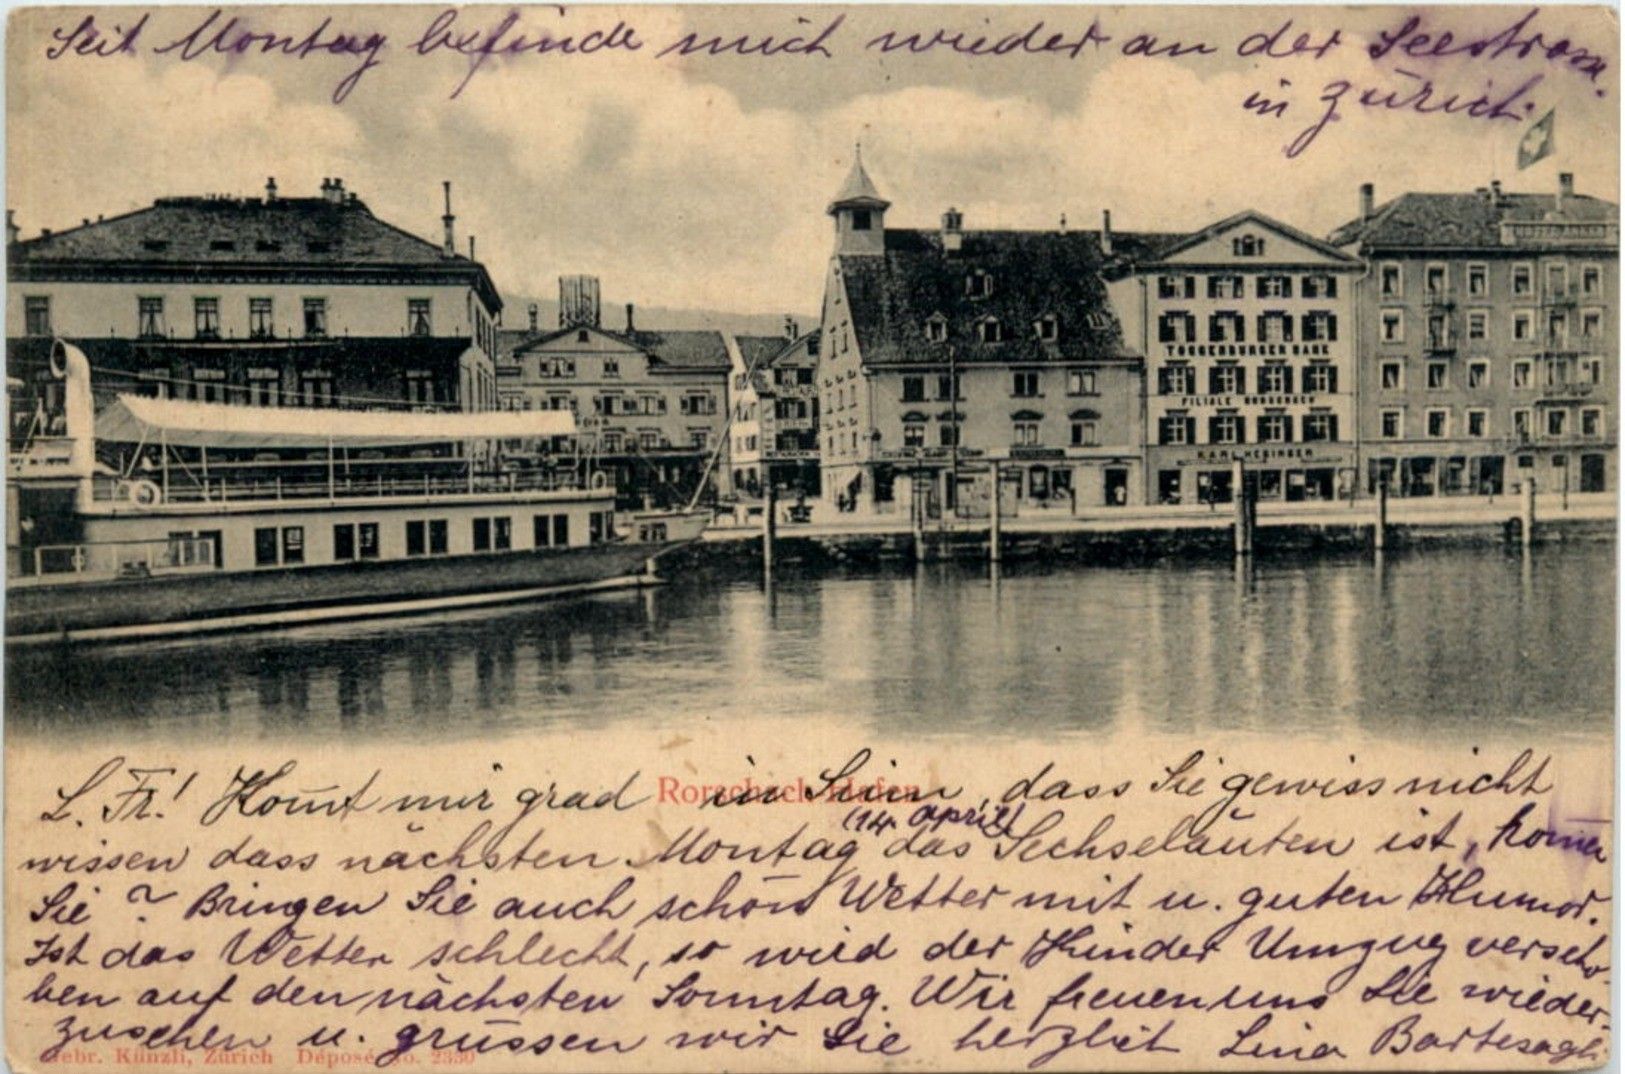 Seit Montag befinde mich wieder an der Seestrasse.
in Zürich.
HOTEL ANKER
TOGGENBURGER BANK
FILIALE RORSCHACH
KARL HEDINGER
Rorschach-Hafen
L. Fr.! Kom̄t mir grad in Sinn, dass Sie gewiss nicht
(14. April)
wissen dass nächsten Montag das Sechseläuten ist, kom̄en
Sie? Bringen Sie auch schön Wetter mit u. guten Humor.
Ist das Wetter schlecht, so wird der Kinder Umzug verscho-
ben auf den nächsten Sonntag. Wir freuen uns Sie wieder-
zusehen u. grüssen wir Sie herzlich Lina Bartesaghi
Gebr. Künzli, Zürich Déposé No. 2330